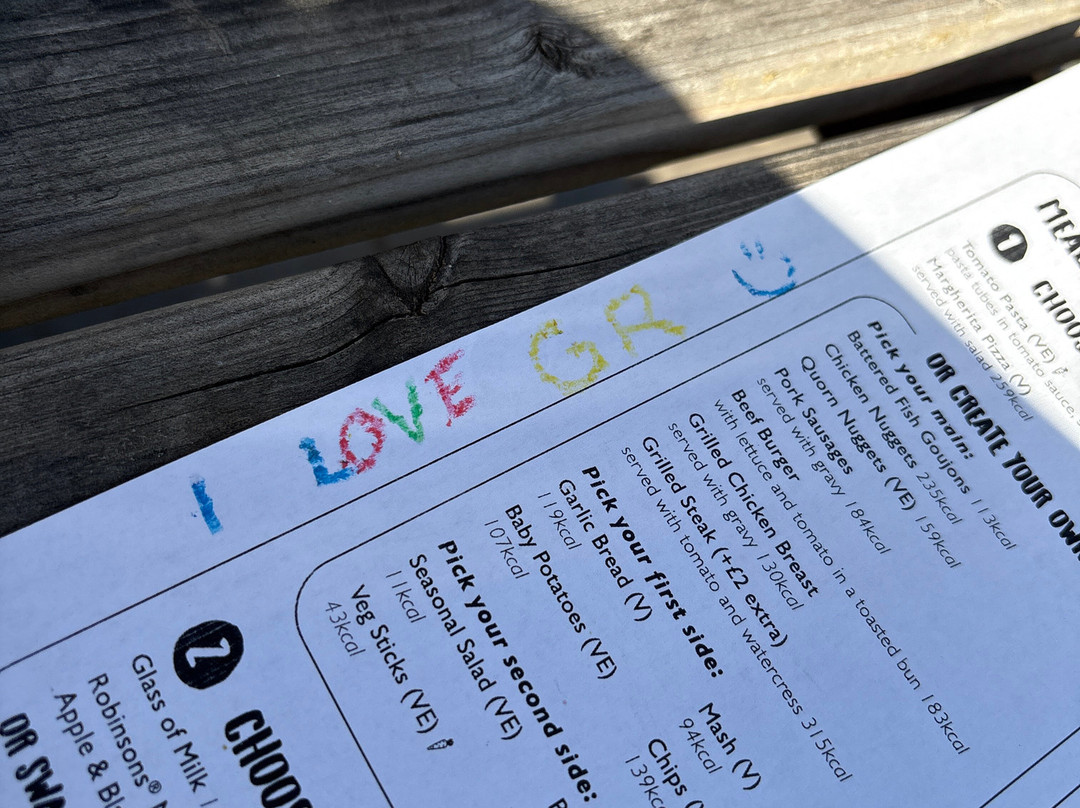 I LOVE GR :)
MEAL
1 CHOO
Tomato Pasta (VE)
pasta tubes in tomato sauce,
Margherita Pizza (V)
served with salad 259kcal
OR CREATE YOUR OWN
Pick your main:
Battered Fish Goujons 113kcal
Chicken Nuggets 235kcal
Quorn Nuggets (VE) 159kcal
Pork Sausages
served with gravy 184kcal
Beef Burger
with lettuce and tomato in a toasted bun 183kcal
Grilled Chicken Breast
served with gravy 130kcal
Grilled Steak (+£2 extra)
served with tomato and watercress 315kcal
Pick your first side:
Garlic Bread (V)
119kcal
Mash (V)
94kcal
Baby Potatoes (VE)
107kcal
Chips (
139kc
Pick your second side:
Seasonal Salad (VE)
11kcal
Veg Sticks (VE)
43kcal
2 CHOOS
Glass of Milk 1
Robinsons®
Apple & Bl
OR SWA